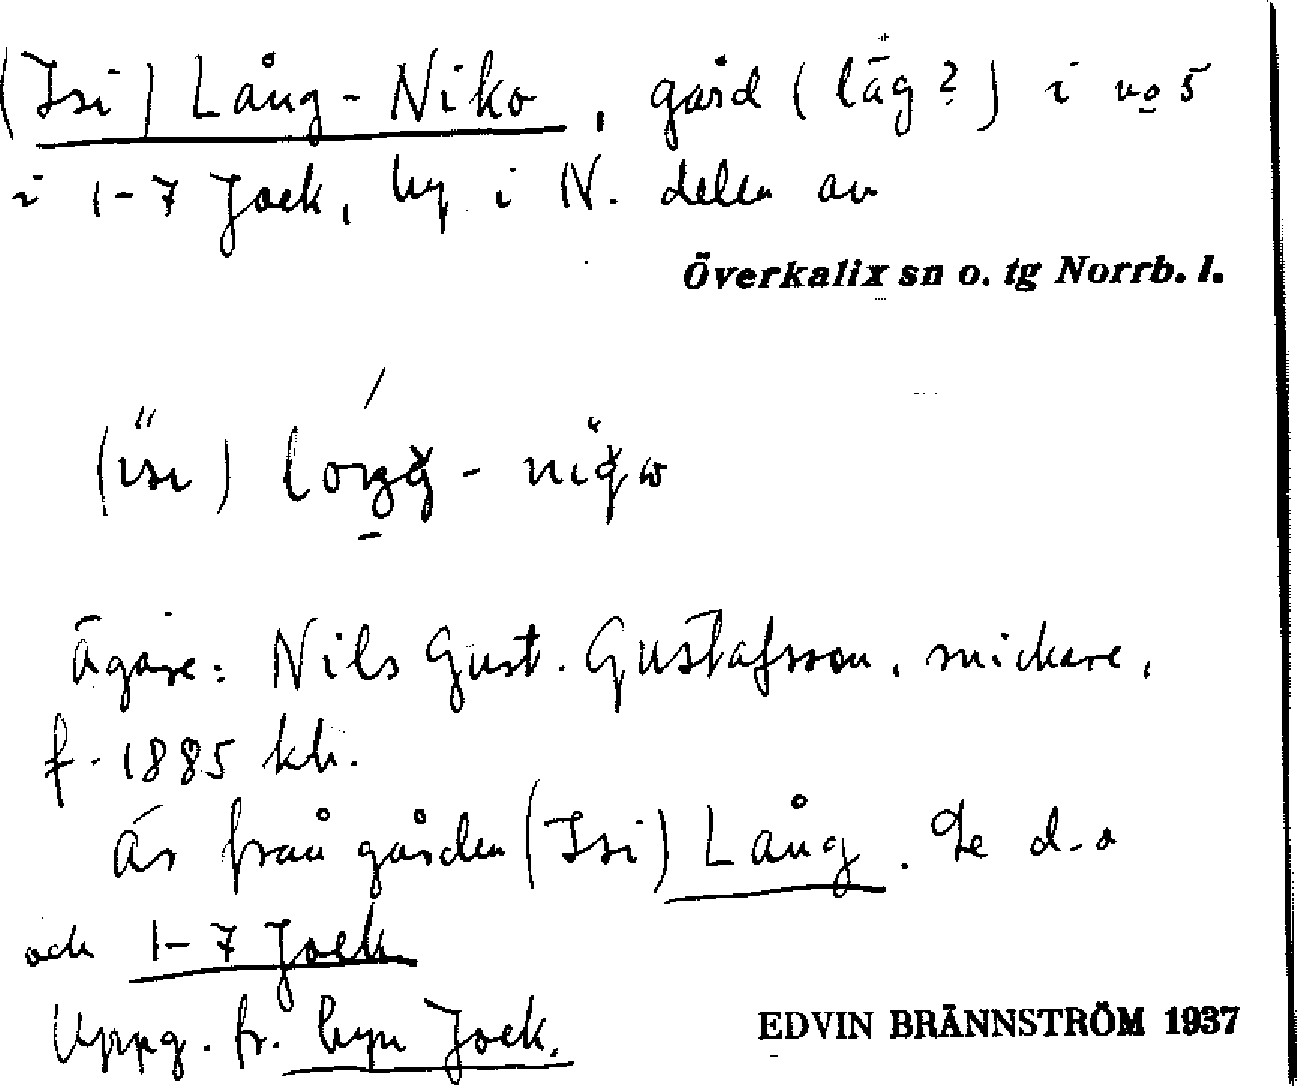 (Isi) Lång-Niko, gård (läg?) i no 5
i 1-7 Jock, by i N. delen av
Överkalix sn o. tg Norrb. l.
(ısı)
Ägare: Nils Gust. Gustafsson, snickare,
f. 1885 kh.
Är från gården (Isi) Lång. Se d. o
och 1-7 Jock
Uppg. fr. byn Jock.
EDVIN BRÄNNSTRÖM 1937